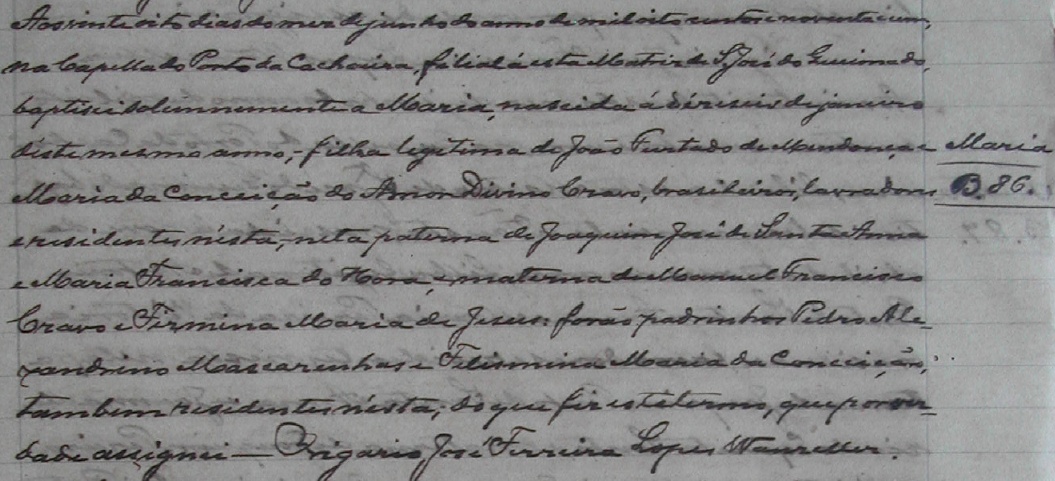 Aos vinte oito dias do mez de junho do anno de mil oito centos e noventa e um,
na Capella do Porto da Cachoeira, filial á esta Matriz de S. José do Queimado,
baptisei solemnemente a Maria, nascida á dezeseis de janeiro
déste mesmo anno, filha legitima de João Furtado de Mendonça e
Maria
Maria da Conceição do Amor Divino Cravo, brasileiros, lavradores
B. 86.
e residentes n'ésta, neta paterna de Joaquim José de Santa Anna
e Maria Francisca do Hora, e materna de Manuel Francisco
Cravo e Firmina Maria de Jesus: forão padrinhos Pedro Ale-
xandrino Mascarenhas e Felismina Maria da Conceição,
tambem residentes n'ésta, do que fiz este termo, que por ver-
dade assignei — O vigario José Ferreira Lopes